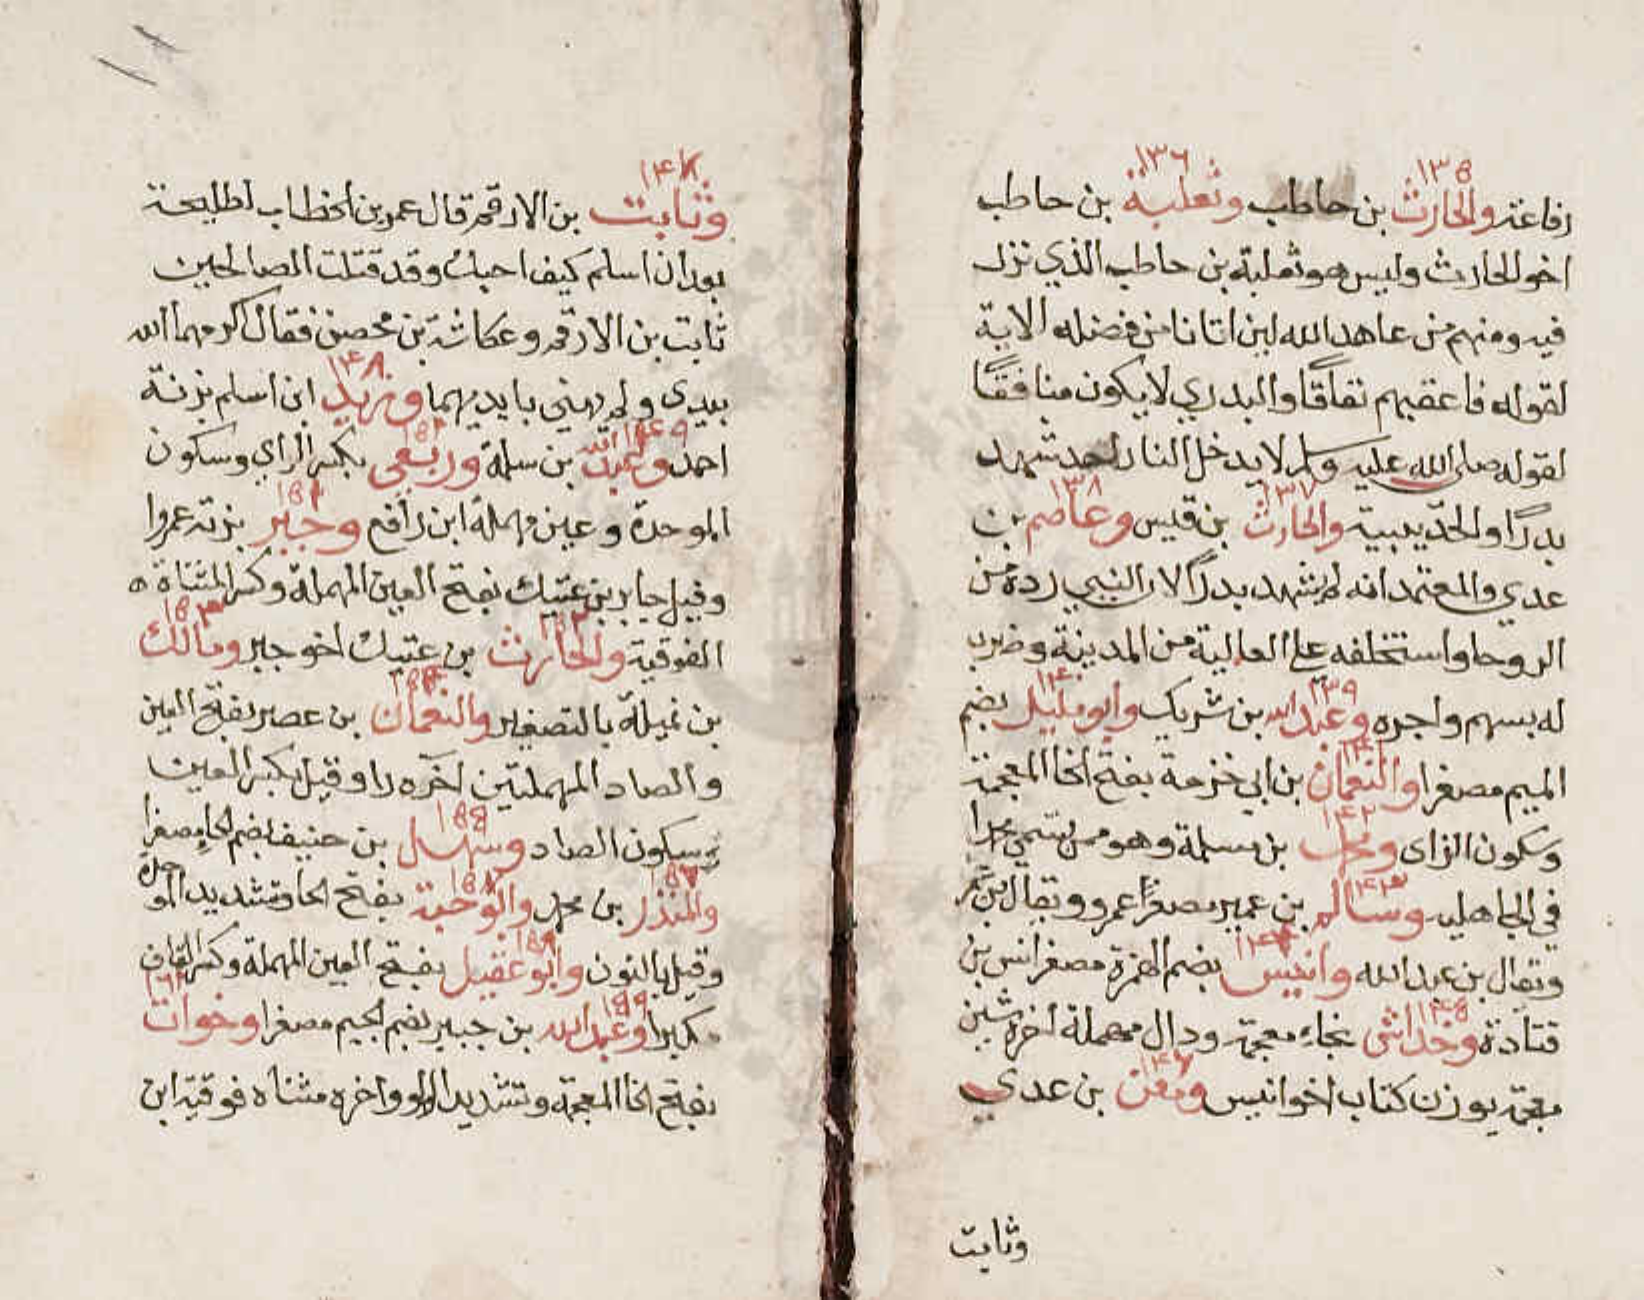 ١٣٥ ١٣٦
رفاعة والحارث بن حاطب وثعلبة بن حاطب
اخو الحارث وليس هو ثعلبة بن حاطب الذي نزل
فيه ومنهم من عاهد الله لين اتانا من فضله الاية
لقوله فاعقبهم نفاقًا والبدري لا يكون منافقًا
لقوله صلى الله عليه وسلم لا يدخل النار احد شهد
١٣٧ ١٣٨
بدرًا والحديبية والحارث بن قيس وعاصم بن
عدي والمعتمد انه لم يشهد بدرًا لان النبي رده من
الروحا واستخلفه على العالية من المدينة وضرب
١٣٩ ١٤٠
له بسهم واجره وعبد الله بن شريك وابو مليل بضم
١٤١
الميم مصغرا والنعمان بن ابي خزمة بفتح الخا المعجمة
١٤٢
وسكون الزاى بن مسلمة وهو ممن سمي محمدا
١٤٣
في الجاهلية وسالم بن عمير مصغرًا عمرو ويقال بن
١٤٤
ويقال بن عبد الله وانيس بضم الهمزة مصغرا انس بن
١٤٥
قتادة وخداش بخاء معجمة ودال مهملة اخره شين
١٤٦
معجمة بوزن كتاب اخو انيس ومعن بن عدي
وثابت
١٤٧
وثابت بن الارقم قال عمر بن الخطاب لطليحة
بعد ان اسلم كيف احبك وقد قتلت الصالحين
ثابت بن الارقم وعكاشة بن محصن فقال اكرمهما الله
١٤٨
بيدى ولم يهني بايديهما وزيد ابن اسلم بزنة
١٤٩
احمد وعبد الله بن سلمة وربعي بكسر الراي وسكون
الموحدة وعين مهملة ابن رافع وجبر بزنة عمرو
وقيل جابر بن عتيك بفتح العين المهملة وكسر المثناة
الفوقية والحارث بن عتيك اخو جبر ومالك
بن نميلة بالتصغير والنعمان بن عصر بفتح العين
والصاد المهملتين اخره را وقيل بكسر العين
وسكون الصاد وسهل بن حنيف بضم الحا مصغرا
والمنذر بن محمد بفتح الحا وتشديد الموحدة
وقيل بالنون وابو عقيل بفتح العين المهملة وكسر القاف
مكبرا وعبد الله بن جبير بضم الجيم مصغرا وخوات
بفتح الخا المعجمة وتشديد الواو واخره مثناه فوقية ابن